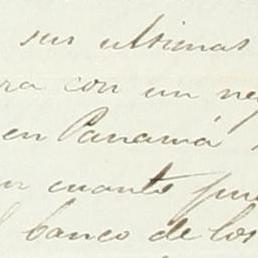 sus ultimas
ra con un ne
en Panamá
n cuanto pu
l banco de los